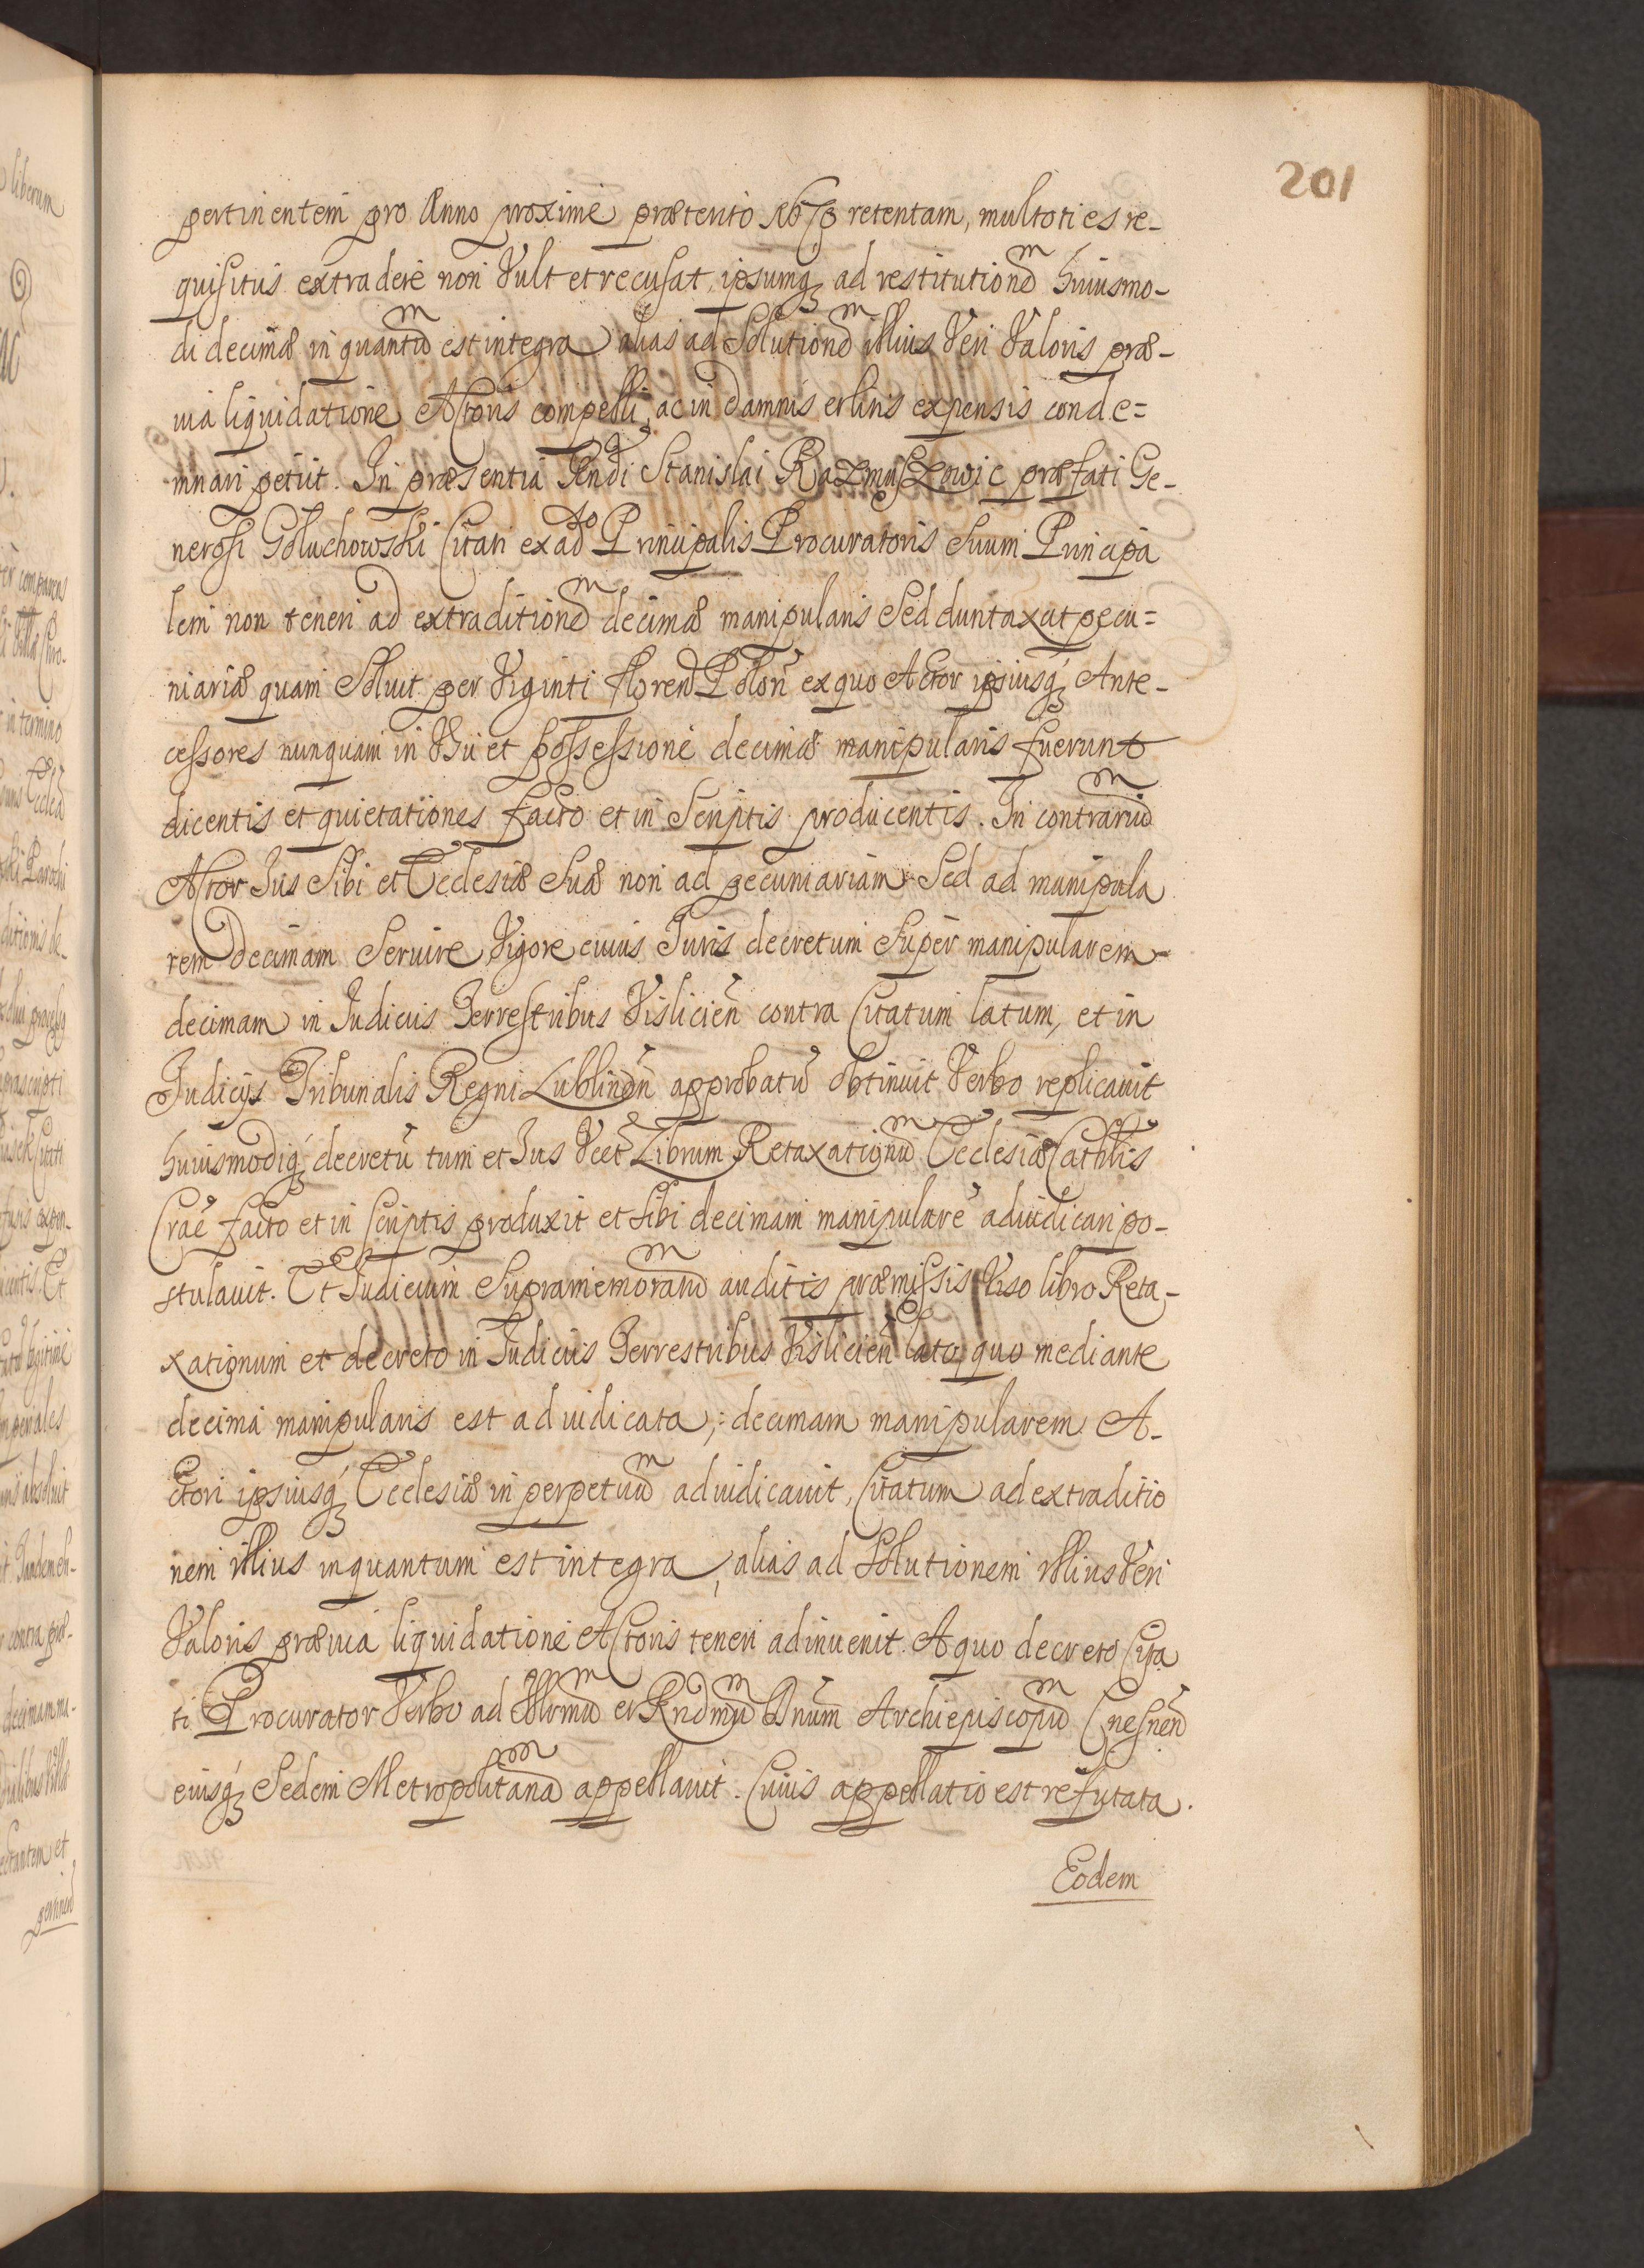 201
pertinentem pro Anno proximè præterito 1673 retentam, multoties re-
quisitus extradere non Vult et recusat, ipsumq₃ ad restitutionem huiusmo-
di decimæ in quantum est integra alias ad Solutionem illius Veri Valoris præ-
uia liquidatione Actoris compelli, ac in damnis erlinis expensis conde=
mnari petiit. In præsentia Gndi Stanislai Razmuszowic præfati Ge-
nerosi Gołuchowski Citati ex ad^o Principalis Procuratoris Suum Principa
lem non teneri ad extraditionem decimæ manipularis Sed duntaxat pecu=
niariæ quam Soluit per Viginti floren Polon ex quo Actor ipsiusq₃ Ante-
cessores nunquam in Usu et possessione decimæ manipularis fuerunt
dicentis et quietationes facto et in Scriptis producentis. In contrarium
Actor Ius Sibi et Ecclesiæ Suæ non ad pecuniariam Sed ad manipula
rem Decimam Seruire Vigore cuius Iuris decretum Super manipularem
decimam in Iudiciis Terrestribus Vislicien contra Citatum latum, et in
Iudicijs Tribunalis Regni Lublinen approbatū obtinuit Verbo replicauit
huiusmodiq₃ decretū tum et Ius Vcet Librum Retaxationum Ecclesiæ Cathlis
Crac facto et in scriptis produxit et Sibi decimam manipularē adiudicari po-
stulauit. Et Iudicium Supramemoratum auditis præmissis Viso libro Reta-
xationum et decreto in Iudiciis Terrestribus Vislicien lato, quo mediante
decima manipularis est adiudicata; decimam manipularem A-
ctori ipsiusq₃ Ecclesiæ in perpetuum adiudicauit, Citatum ad extraditio
nem illius inquantum est integra, alias ad Solutionem illius Veri
Valoris præuia liquidatione Actoris teneri adinuenit. A quo decreto Cita
ti Procurator Verbo ad Illrmum et Rndmum Dnum Archiepiscopum Gnesnen
eiusq₃ Sedem Metropolitanam appellauit. Cuius appellatio est refutata.
Eodem